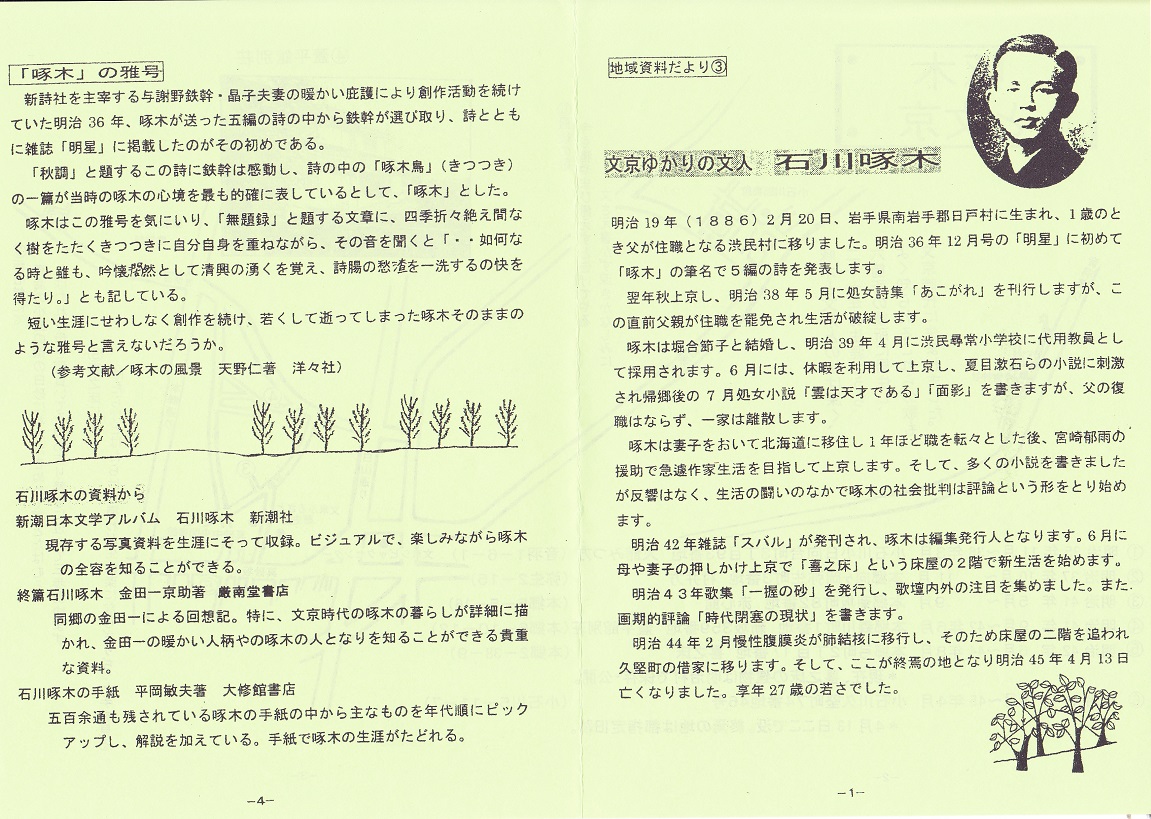 地域資料だより③
文京ゆかりの文人 石川啄木
明治19年（1886）2月20日、岩手県南岩手郡日戸村に生まれ、1歳のと
き父が住職となる渋民村に移りました。明治36年12月号の「明星」に初めて
「啄木」の筆名で5編の詩を発表します。
翌年秋上京し、明治38年5月に処女詩集「あこがれ」を刊行しますが、こ
の直前父親が住職を罷免され生活が破綻します。
啄木は堀合節子と結婚し、明治39年4月に渋民尋常小学校に代用教員とし
て採用されます。6月には、休暇を利用して上京し、夏目漱石らの小説に刺激
され帰郷後の7月処女小説「雲は天才である」「面影」を書きますが、父の復
職はならず、一家は離散します。
啄木は妻子をおいて北海道に移住し1年ほど職を転々とした後、宮崎郁雨の
援助で急遽作家生活を目指して上京します。そして、多くの小説を書きました
が反響はなく、生活の闘いのなかで啄木の社会批判は評論という形をとり始め
ます。
明治42年雑誌「スバル」が発刊され、啄木は編集発行人となります。6月に
母や妻子の押しかけ上京で「喜之床」という床屋の2階で新生活を始めます。
明治43年歌集「一握の砂」を発行し、歌壇内外の注目を集めました。また.
画期的評論「時代閉塞の現状」を書きます。
明治44年2月慢性腹膜炎が肺結核に移行し、そのため床屋の二階を追われ
久堅町の借家に移ります。そして、ここが終焉の地となり明治45年4月13日
亡くなりました。享年27歳の若さでした。
－1－
「啄木」の雅号
新詩社を主宰する与謝野鉄幹・晶子夫妻の暖かい庇護により創作活動を続け
ていた明治36年、啄木が送った五編の詩の中から鉄幹が選び取り、詩ととも
に雑誌「明星」に掲載したのがその初めである。
「秋調」と題するこの詩に鉄幹は感動し、詩の中の「啄木鳥」（きつつき）
の一篇が当時の啄木の心境を最も的確に表しているとして、「啄木」とした。
啄木はこの雅号を気にいり、「無題録」と題する文章に、四季折々絶え間な
く樹をたたくきつつきに自分自身を重ねながら、その音を聞くと「・・如何な
る時と雖も、吟懐然として清興の湧くを覚え、詩腸の愁渣を一洗するの快を
得たり。」とも記している。
短い生涯にせわしなく創作を続け、若くして逝ってしまった啄木そのままの
ような雅号と言えないだろうか。
（参考文献／啄木の風景 天野仁著 洋々社）
石川啄木の資料から
新潮日本文学アルバム 石川啄木 新潮社
現存する写真資料を生涯にそって収録。ビジュアルで、楽しみながら啄木
の全容を知ることができる。
終篇石川啄木 金田一京助著 厳南堂書店
同郷の金田一による回想記。特に、文京時代の啄木の暮らしが詳細に描
かれ、金田一の暖かい人柄やの啄木の人となりを知ることができる貴重
な資料。
石川啄木の手紙 平岡敏夫著 大修館書店
五百余通も残されている啄木の手紙の中から主なものを年代順にピック
アップし、解説を加えている。手紙で啄木の生涯がたどれる。
－4－